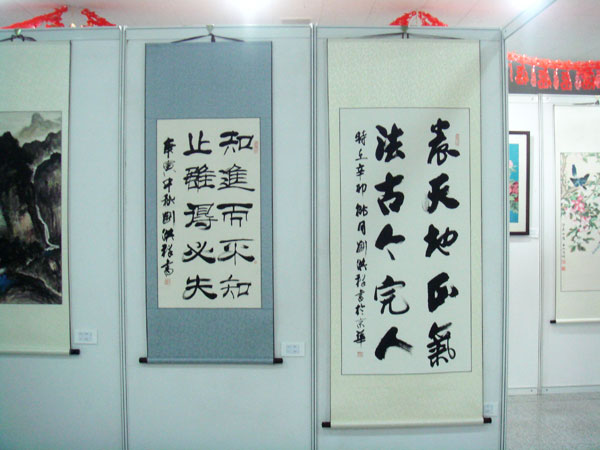 知進而不知
止雖得必失
庚寅中秋劉洪書
養天地正氣
法古今完人
時在辛卯月劉洪書於京華